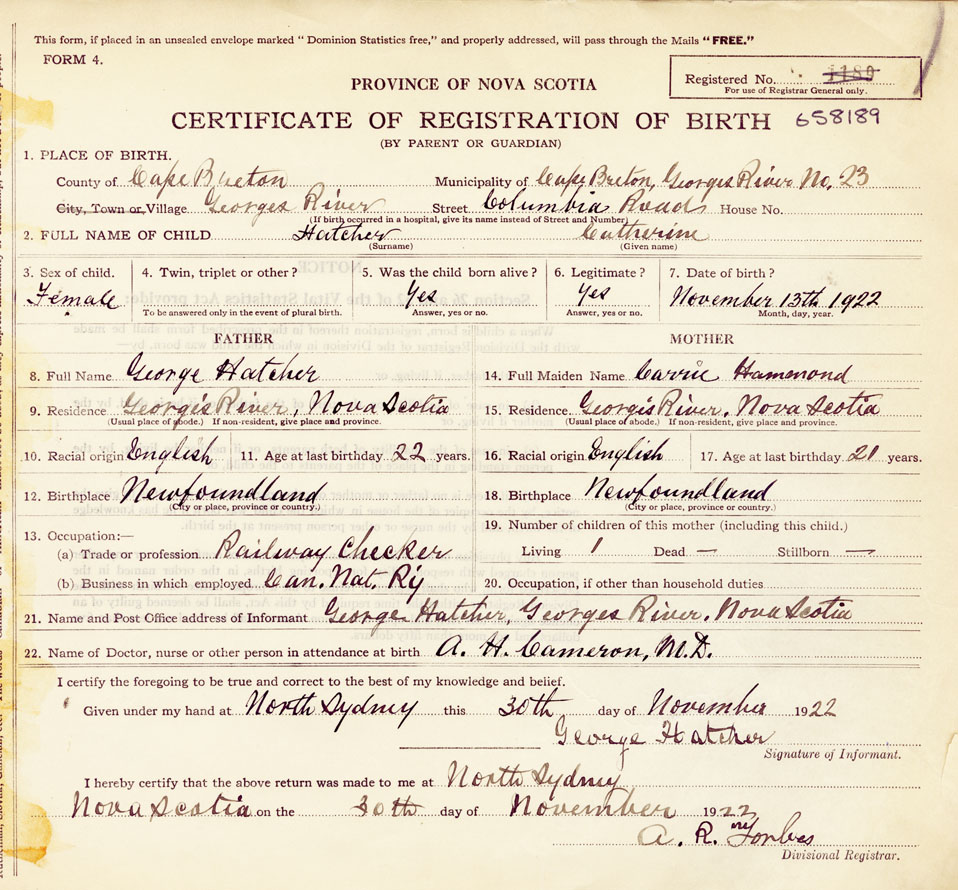 This form, if placed in an unsealed envelope marked "Dominion Statistics free," and properly addressed, will pass through the Mails "FREE."
FORM 4.
Registered No. 1180
For use of Registrar General only.
PROVINCE OF NOVA SCOTIA
CERTIFICATE OF REGISTRATION OF BIRTH 658189
(BY PARENT OR GUARDIAN)
1. PLACE OF BIRTH.
County of Cape Breton Municipality of Cape Breton, Georges River No. 23
City, Town or Village Georges River Street Columbia Road House No.
(If birth occurred in a hospital, give its name instead of Street and Number)
2. FULL NAME OF CHILD Hatcher Catherine
(Surname) (Given name)
3. Sex of child. 4. Twin, triplet or other? 5. Was the child born alive? 6. Legitimate? 7. Date of birth?
Female Yes Yes November 13th 1922
To be answered only in the event of plural birth. Answer, yes or no. Answer, yes or no. Month, day, year.
FATHER MOTHER
8. Full Name George Hatcher 14. Full Maiden Name Carrie Hammond
9. Residence Georges River, Nova Scotia 15. Residence Georges River, Nova Scotia
(Usual place of abode.) If non-resident, give place and province. (Usual place of abode.) If non-resident, give place and province.
10. Racial origin English 11. Age at last birthday 22 years. 16. Racial origin English 17. Age at last birthday 21 years.
12. Birthplace Newfoundland 18. Birthplace Newfoundland
(City or place, province or country.) (City or place, province or country.)
13. Occupation:— 19. Number of children of this mother (including this child.)
(a) Trade or profession Railway Checker Living 1 Dead — Stillborn —
(b) Business in which employed Can. Nat. Ry 20. Occupation, if other than household duties
21. Name and Post Office address of Informant George Hatcher, Georges River, Nova Scotia
22. Name of Doctor, nurse or other person in attendance at birth A. H. Cameron, M.D.
I certify the foregoing to be true and correct to the best of my knowledge and belief.
Given under my hand at North Sydney this 30th day of November 1922
George Hatcher
Signature of Informant.
I hereby certify that the above return was made to me at North Sydney
Nova Scotia on the 30th day of November 1922
A. R. Forbes
Divisional Registrar.